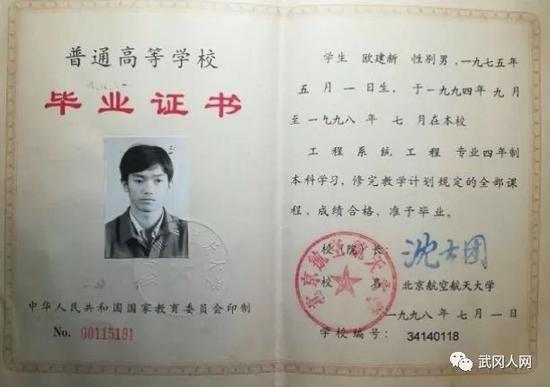 普通高等学校
毕业证书
中华人民共和国国家教育委员会印制
No. 00115191
学生 欧建新 性别男,一九七五年
五月一日生,于一九九四年九月
至一九九八年七月在本校
工程系统工程 专业四年制
本科学习,修完教学计划规定的全部课
程,成绩合格,准予毕业。
校(院)长:沈士团
校 名 北京航空航天大学
一九九八年七月一日
学校编号: 34140118
北京航空航天大学
武冈人网